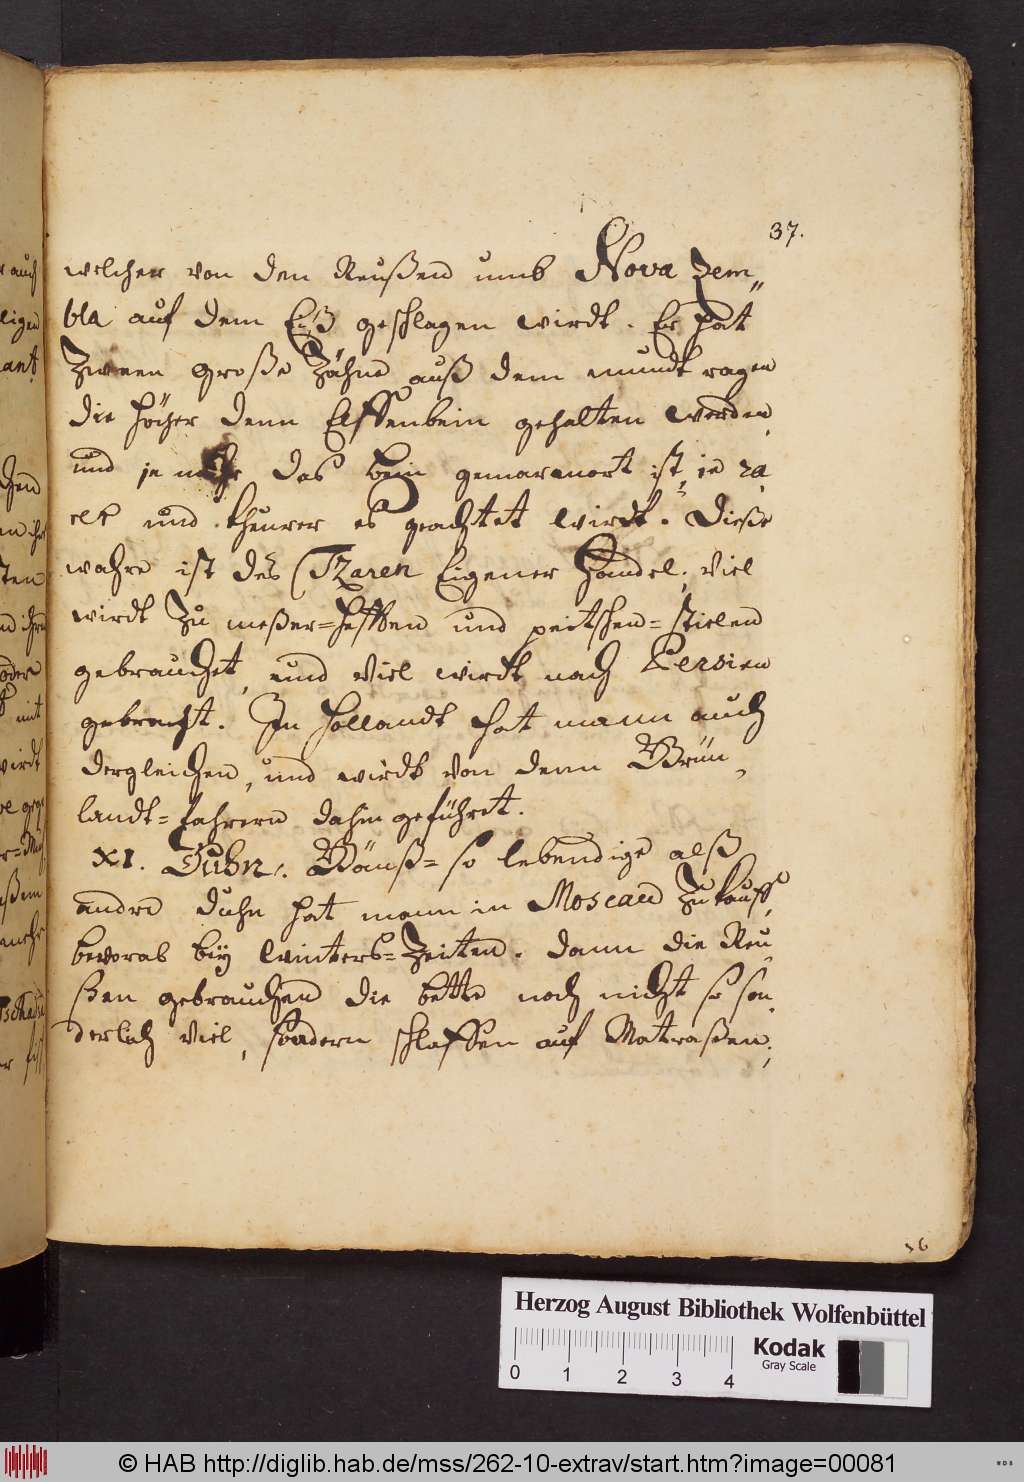 37.
welcher von den Reußen umb Nova Zem„
bla auf dem Eiß geschlagen wirdt. Er hat
Zween große Zähne auß dem mundt ragen
die höher denn Elffenbein gehalten werden,
und je mehr das bein gemarmort ist, je ra,
rer und theurer es geachtet wirdt. Diese
wahre ist des Tzaren Eigener Handel, Viel
wirdt Zu meßer=hefften und peitschen=stielen
gebrauchet, und Viel wirdt nach Persien
gebracht. In Hollandt hat mann auch
dergleichen, und wirdt von denn Grün,
landt=fahrern dahin geführet.
XI. Duhn. Gänß= so lebendige alß
andre Duhn hat mann in Moscau Zu kauff,
bevorab bey Winters=Zeiten. dann die Reu,
ßen gebrauchen die bette noch nicht so son,
derlich Viel, sondern schlaffen auf Matraßen,
36
auch
ligen
ant
ten
oder
mit
wirdt
Herzog August Bibliothek Wolfenbüttel
0 1 2 3 4
Kodak
Gray Scale
© HAB http://diglib.hab.de/mss/262-10-extrav/start.htm?image=00081